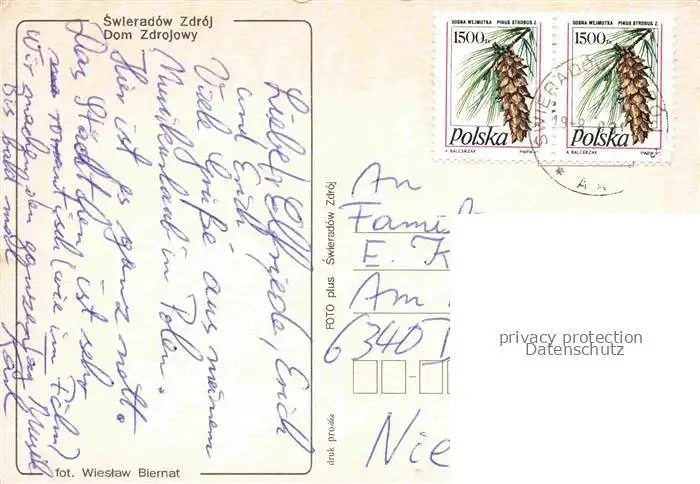 Świeradów Zdrój
Dom Zdrojowy
Liebe Elfriede, Erich
und Erich
Viele Grüße aus meinem
Musikurlaub in Polen.
Hier ist es ganz nett.
Das Städtchen ist sehr
romantisch (wie im Film)
Wir machen den ganzen Tag Musik
Bis bald mal
fot. Wiesław Biernat
FOTO plus Świeradów Zdrój
druk
SOSNA WEJMUTKA PINUS STROBUS Z.
1500zł
Polska
A. BALCERZAK PWPW
SOSNA WEJMUTKA PINUS STROBUS Z.
1500zł
Polska
A. BALCERZAK PWPW
ŚWIERADÓ
An
Fami
E. K
Am
6340 D
Nie
privacy protection
Datenschutz